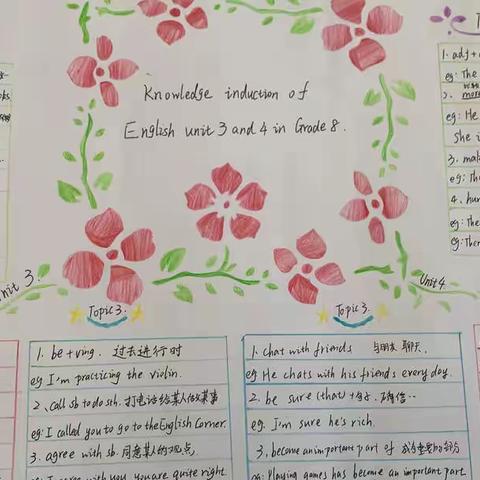 Knowledge induction of
English unit 3 and 4 in Grade 8.
1. adj +
eg: The
2. more
eg: He
She i
3. mak
eg: The
4. hun
eg: The
eg: Ther
unit 3.
Unit 4
Topic 3.
1. be + ving. 过去进行时
eg: I'm practicing the violin.
2. Call sb to do sth. 打电话给某人做某事
eg: I called you to go to the English Corner.
3. agree with sb. 同意某人的观点,
eg: I agree with you. you are quite right
Topic 3.
1. chat with friends 与朋友聊天.
eg: He chats with his friends every day.
2. be sure (that) +句子. 确信..
eg: I'm sure he's rich.
3. become an important part of 成为重要的部分
eg: Playing games has become an important part